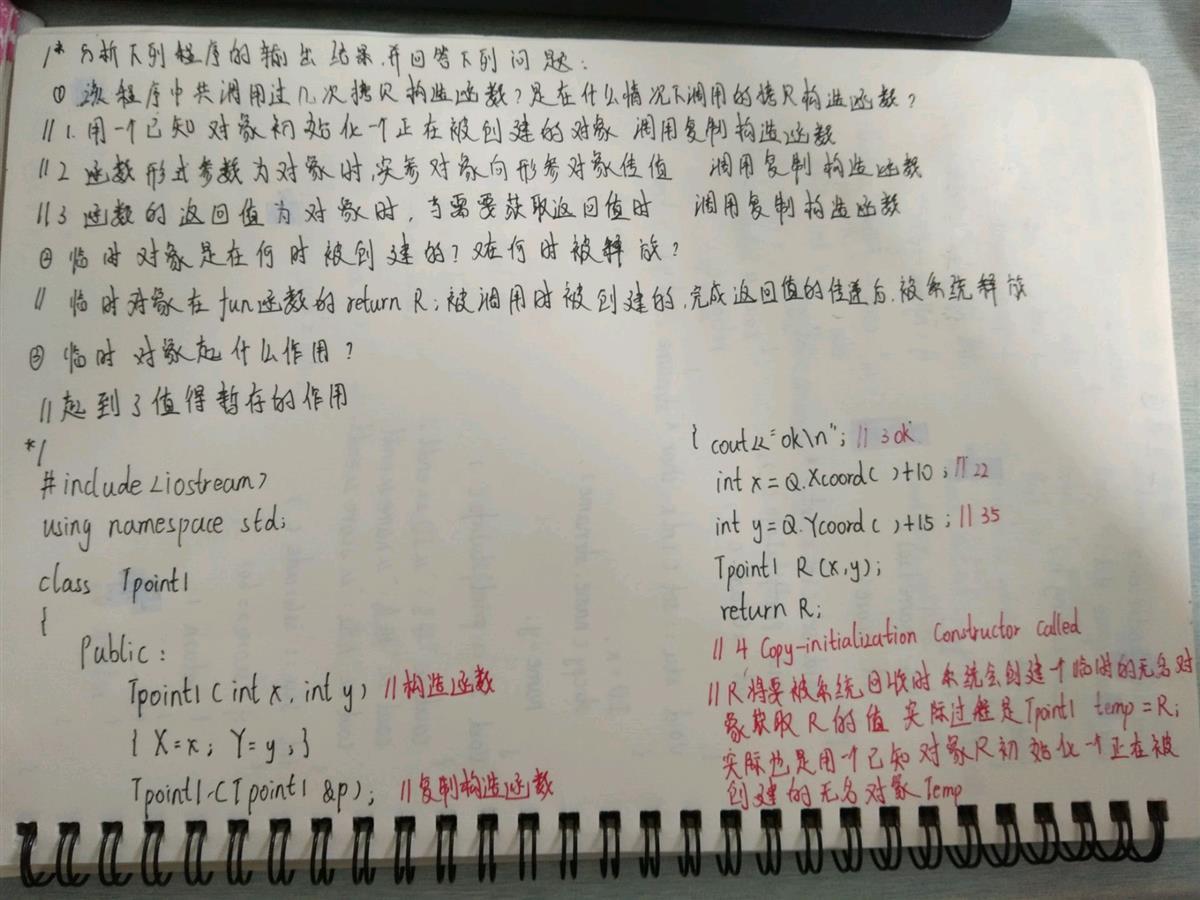 /* 分析下列程序的输出结果,并回答下列问题:
① 该程序中共调用过几次拷贝构造函数?是在什么情况下调用的拷贝构造函数?
//1.用一个已知对象初始化一个正在被创建的对象 调用复制构造函数
//2 函数形式参数为对象时,实参对象向形参对象传值 调用复制构造函数
//3 函数的返回值为对象时,当需要获取返回值时 调用复制构造函数
② 临时对象是在何时被创建的?又在何时被释放?
// 临时对象在fun函数的return R;被调用时被创建的,完成返回值的传递后,被系统释放
③ 临时对象起什么作用?
//起到了值得暂存的作用
*/
#include <iostream>
using namespace std;
class Tpoint1
{
Public:
Tpoint1(int x,int y) //构造函数
{ X=x; Y=y;}
Tpoint1(Tpoint1 &p); //复制构造函数
{ cout<<"ok\n"; // 3ok
int x=Q.Xcoord()+10; //22
int y=Q.Ycoord()+15; //35
Tpoint1 R(x,y);
return R;
// 4 Copy-initialization Constructor called
//R将要被系统回收时系统会创建一个临时的无名对
象获取R的值 实际过程是Tpoint1 temp=R;
实际也是用一个已知对象R初始化一个正在被
创建的无名对象Temp